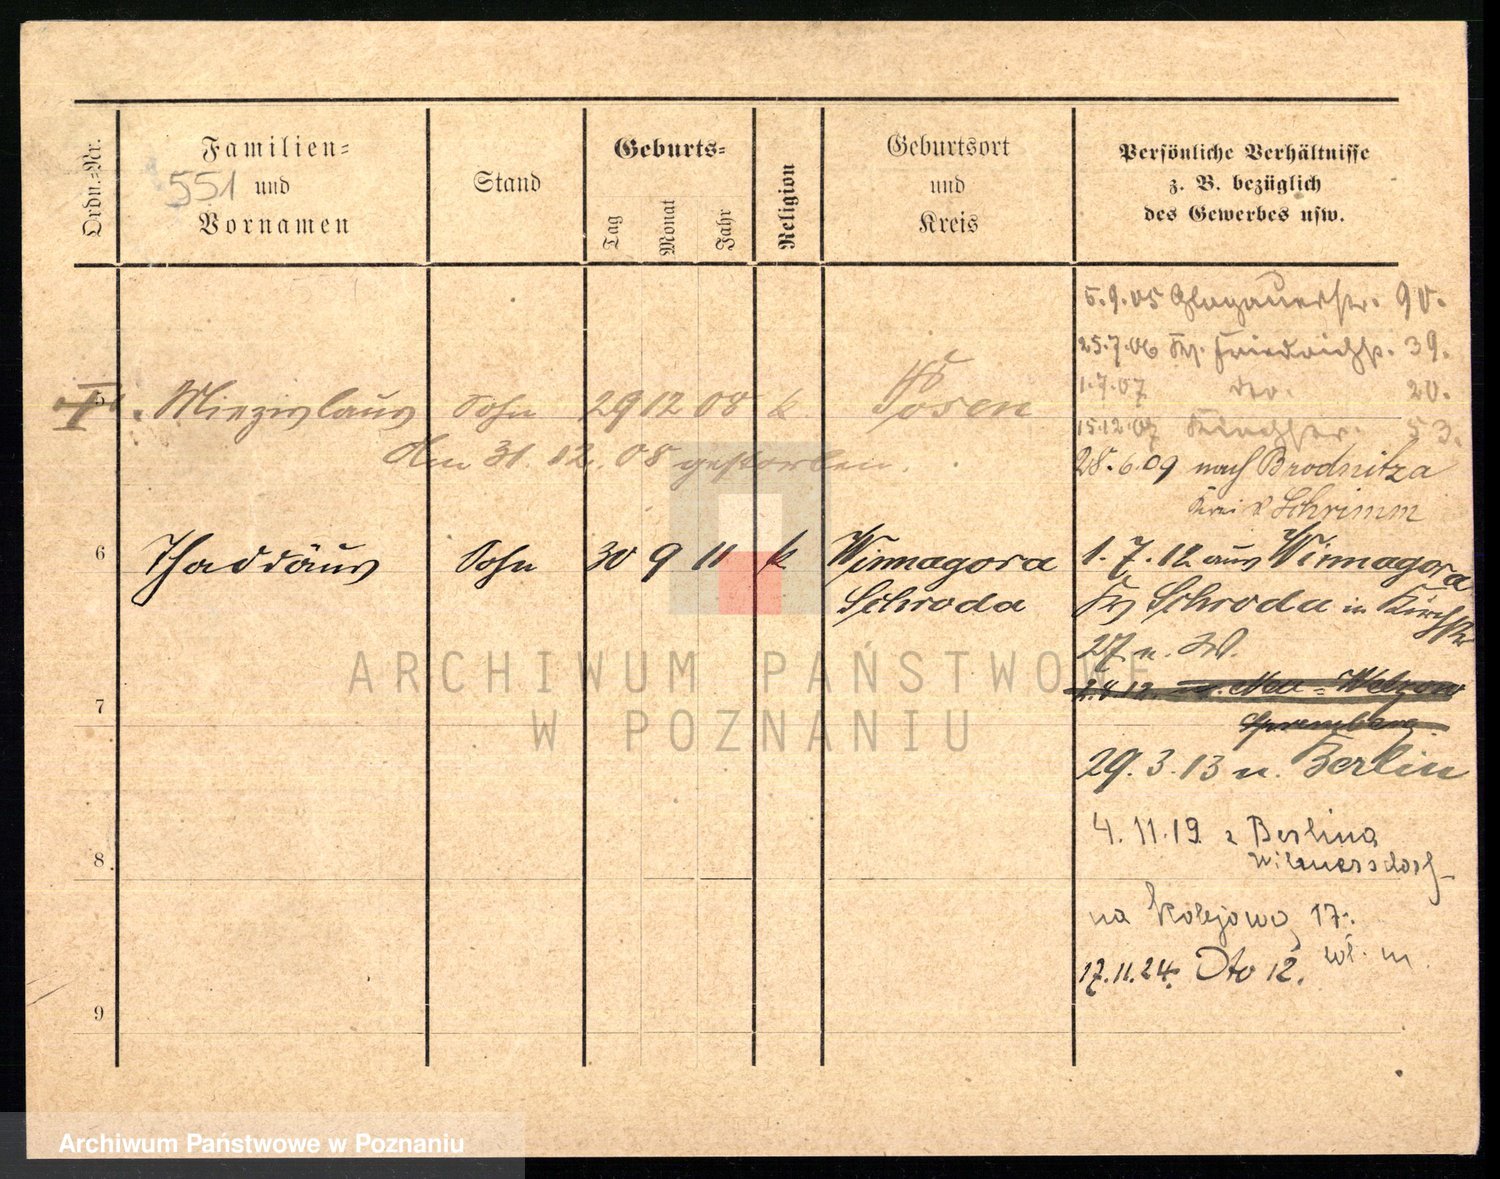 Ordn.-Nr.
Familien-
551 und
Vornamen
Stand
Geburts-
Tag
Monat
Jahr
Religion
Geburtsort
und
Kreis
Persönliche Verhältnisse
z. B. bezüglich
des Gewerbes usw.
5.9.05 Glogauerstr. 90.
25.7.06 Friedrichstr. 39.
1.7.07 do. 20.
15.12.07 53.
5 Miezislaus Sohn 29 12 08 k Posen
Am 31.12.08 gestorben.
28.6.09 nach Brodnitza
Kreis Schrimm
6 Thaddäus Sohn 30 9 11 k Winnagora
Schroda
1.7.12 aus Winnagora
Kr Schroda in Kirchstr
27 n. W.
7
2.8.12 n. Neu-Welzow
Spremberg
29.3.13 n. Berlin
8
4.11.19 z Berlina
Wilmersdorf
na Kolejową 17.
wł. m.
17.11.24. Dto 12.
9
ARCHIWUM PAŃSTWOWE
W POZNANIU
Archiwum Państwowe w Poznaniu